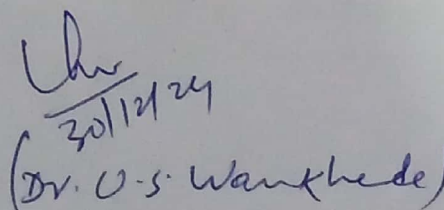 30/12/24
(Dr. U.S. Wankhede)